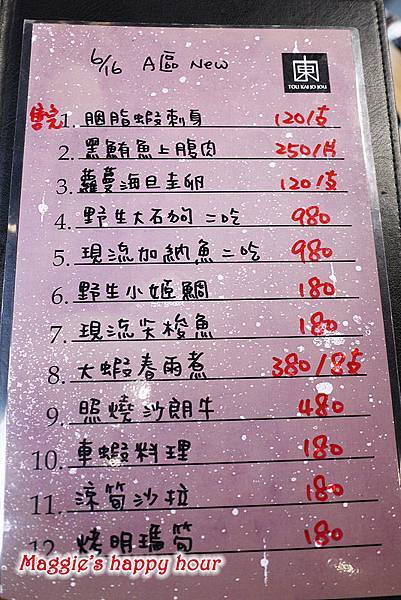 6/16 A區 New
東
TOU KAI JO JOU
售完 1. 胭脂蝦刺身 120/支
2. 黑鮪魚上腹肉 250/片
3. 蘿蔓海旦圭卵 120/支
4. 野生大石狗 二吃 980
5. 現流加納魚二吃 980
6. 野生小姬鯛 180
7. 現流尖梭魚 180
8. 大蝦春雨煮 380/8支
9. 照燒沙朗牛 480
10. 車蝦料理 180
11. 涼筍沙拉 180
12. 烤明瑪筍 180
Maggie's happy hour